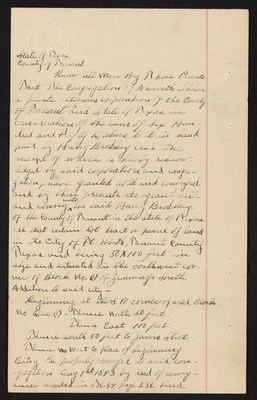 State of Texas
County of Tarrant.
Know all Men By These Presents
That The Congregation of
a private religious corporation of the County
of Tarrant and State of Texas in
consideration of the sum of Six Hun-
dred and Fifty Dollars to it in hand
paid by Harry Brodsky cash the
receipt of which is hereby acknow-
ledged by said corporation and congre-
gation, have granted sold and conveyed
and by these presents do grant sell
and convey unto said Harry Brodsky
of the County of Tarrant in the state of Texas
all that certain lot tract or parcel of land
in the City of Ft. Worth, Tarrant County
Texas and being 50 X 100 feet in
size and situated in the southwest cor-
ner of Block No. of Jennings South
Addition to said city -
Beginning at the S W corner of said Block
No. Thence North 50 feet.
Thence East 100 feet.
Thence south 50 feet to street
Thence West to place of beginning
Being the property conveyed to said con-
gregation by deed of convey-
ance recorded in page 232, Deed